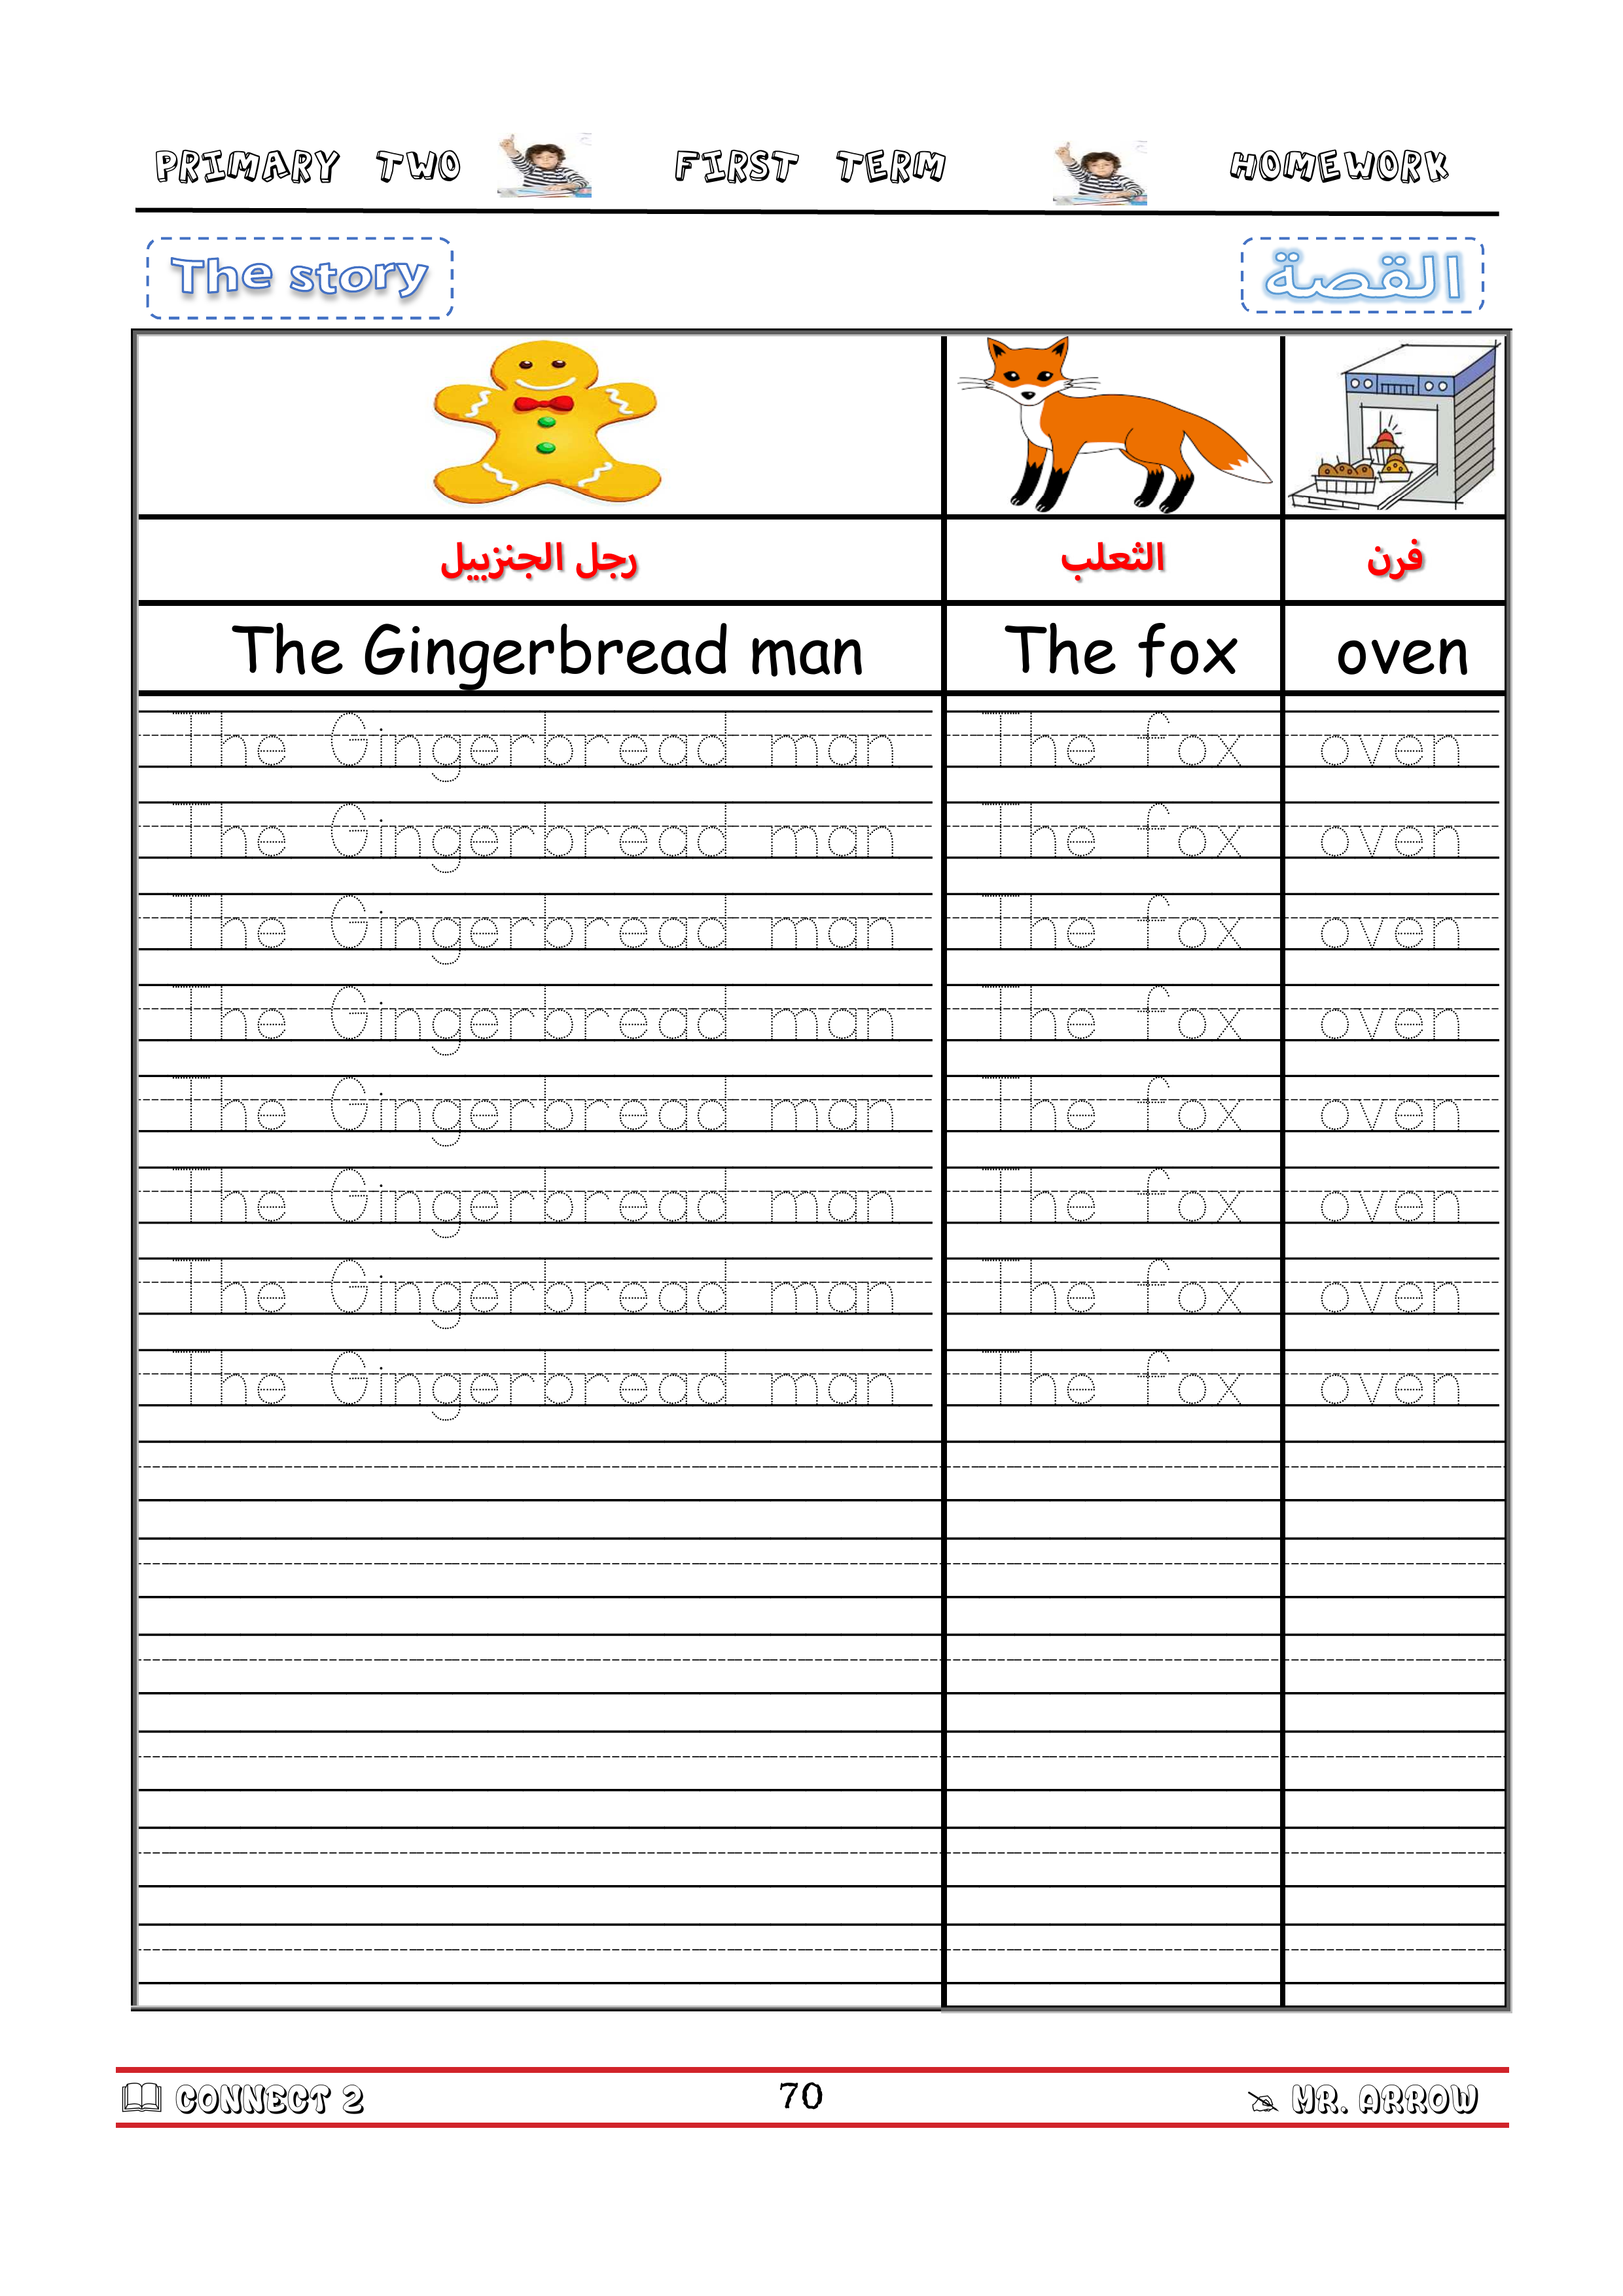 PRIMARY TWO FIRST TERM HOMEWORK
The story القصة
رجل الجنزبيل الثعلب فرن
The Gingerbread man The fox oven
The Gingerbread man The fox oven
The Gingerbread man The fox oven
The Gingerbread man The fox oven
The Gingerbread man The fox oven
The Gingerbread man The fox oven
The Gingerbread man The fox oven
The Gingerbread man The fox oven
The Gingerbread man The fox oven
CONNECT 2 70 MR. ARROW